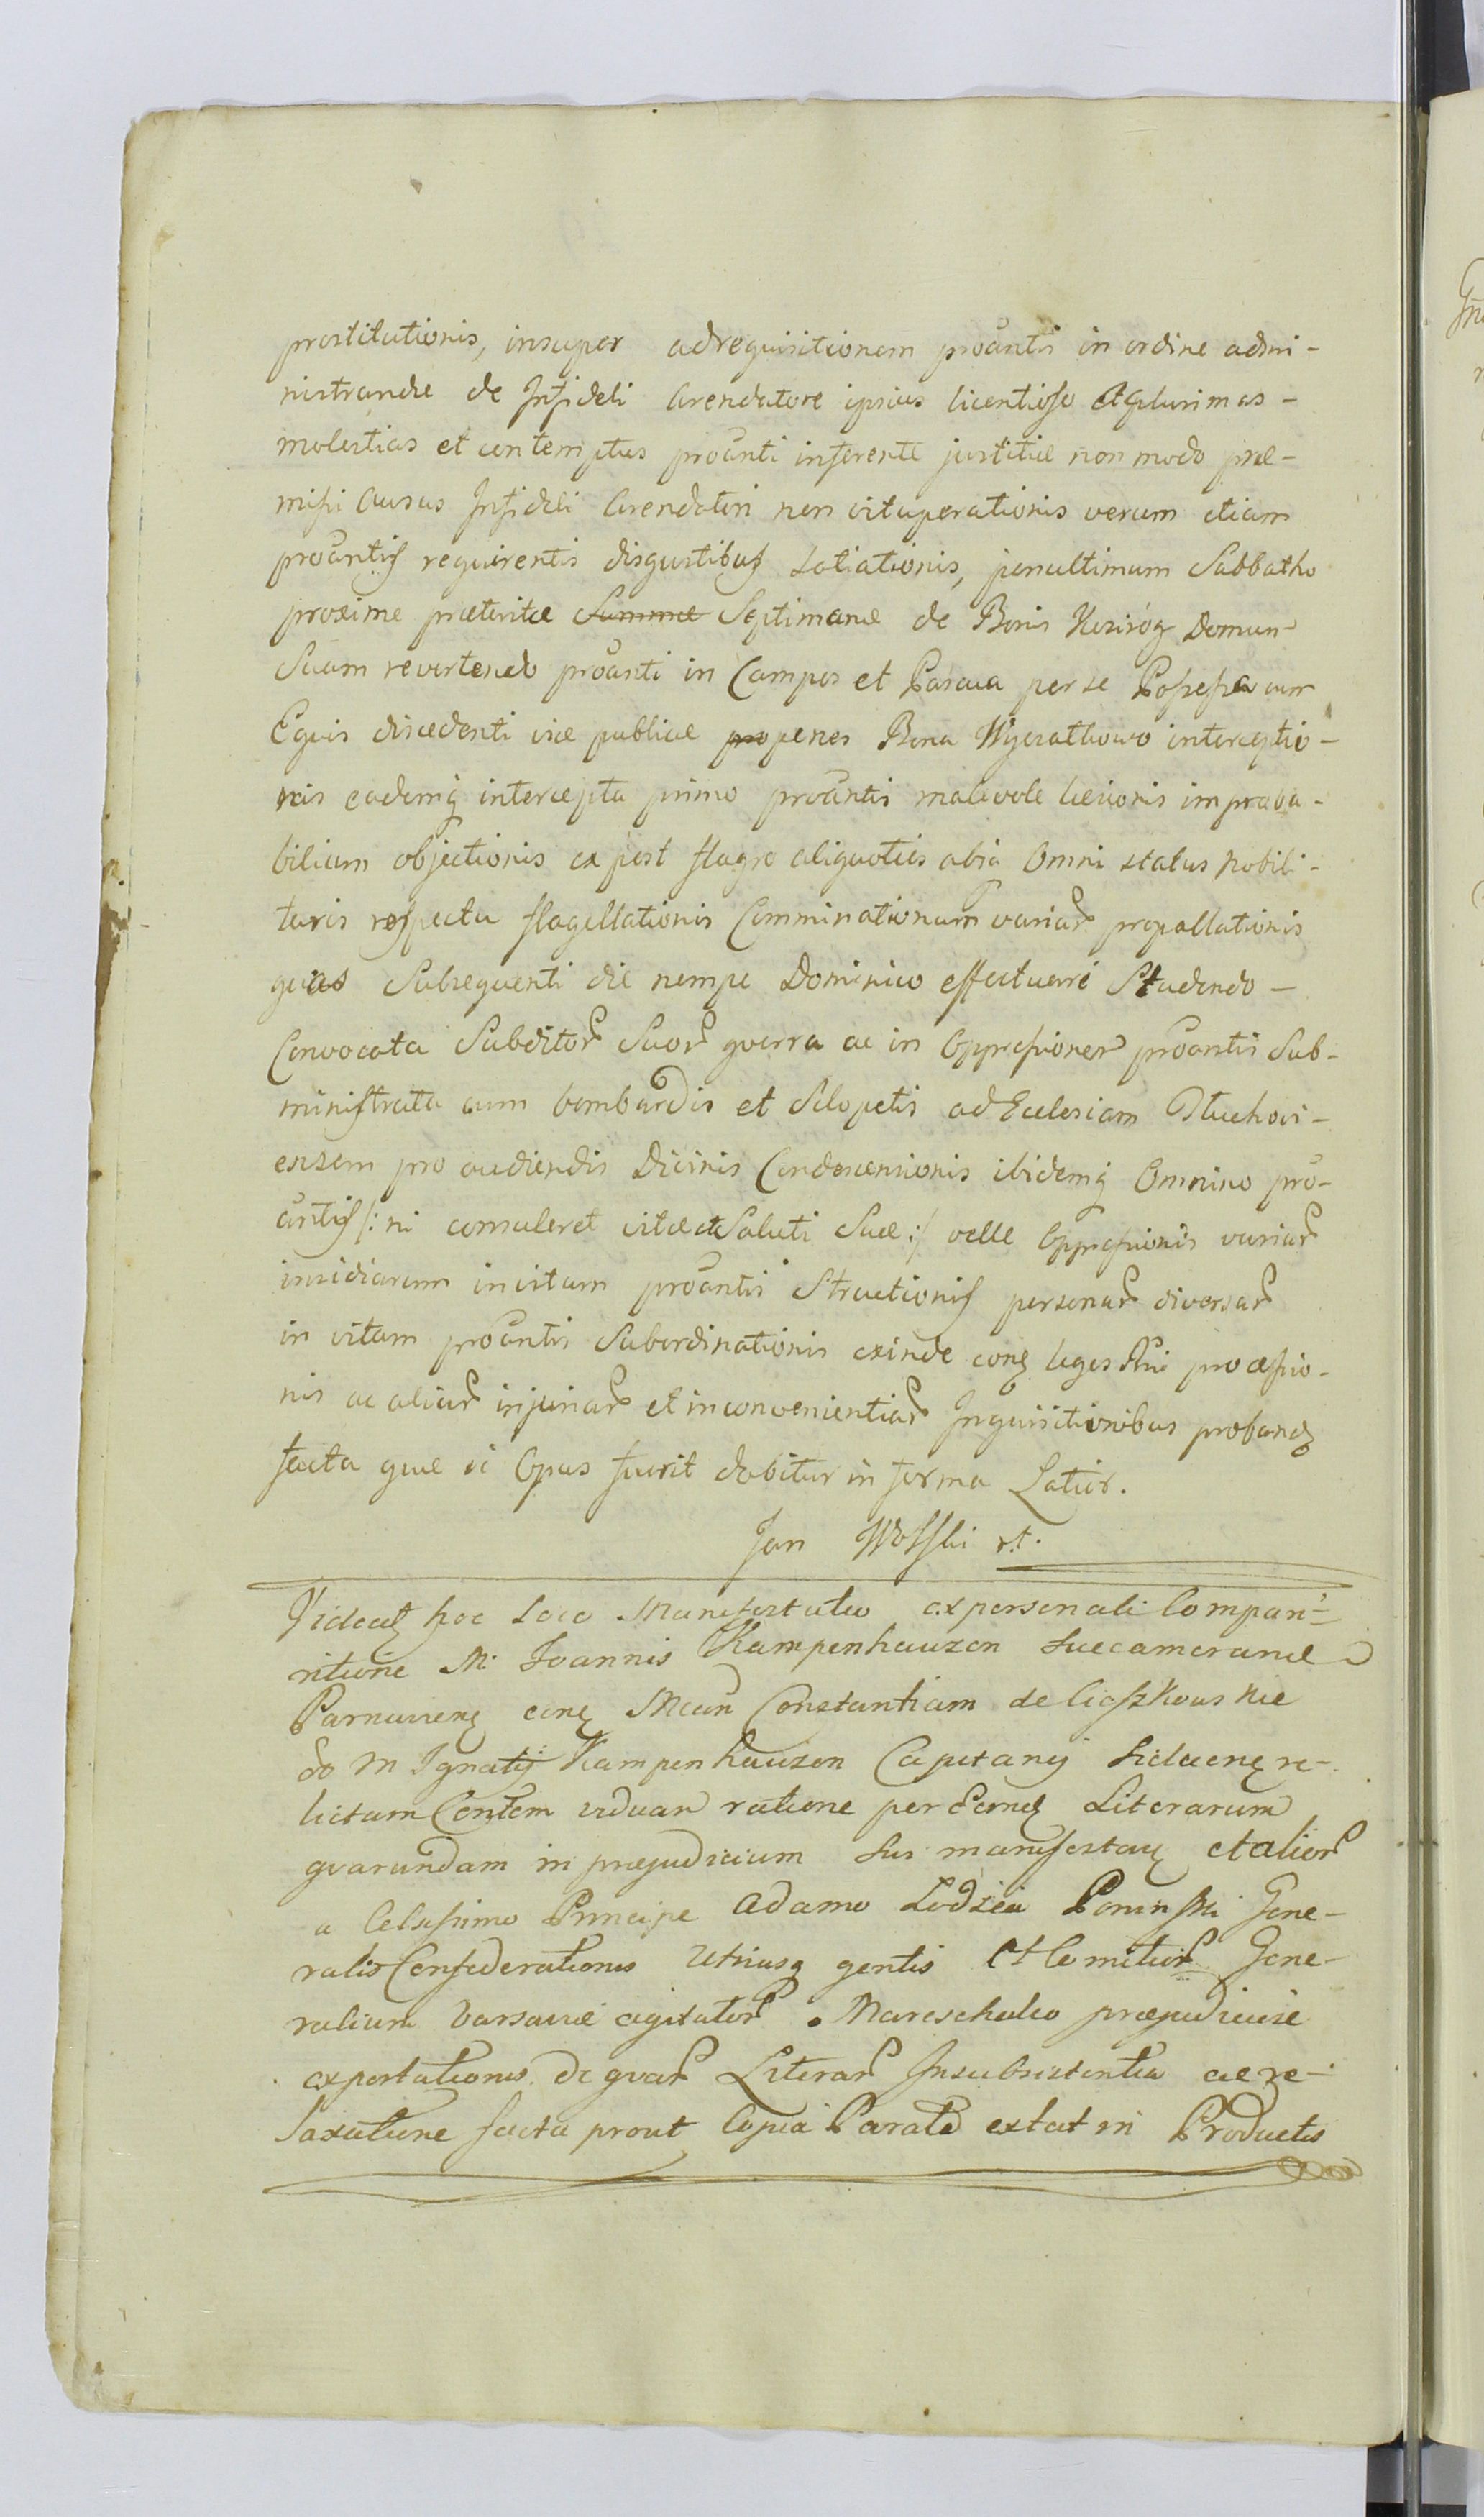 prostitutionis, insuper ad requisitionem proantis in ordine admi-
nistrandæ de Infideli Arendatore ipsius licentioso et plurimas-
molestias et contemptus proanti inferente justitiæ non modo præ-
missi ausus Infideli Arendatori non vituperationis verum etiam
proantis requirentis disgustibus satiationis, penultimum Sabbatho
proxime præteritæ Summæ Septimanæ de Bonis Koziróg Domum
Suam revertendo proanti in Campos et Pascua per se Possessa cum
Equis discedenti viæ publicæ pro penes Bona Wyczałkowo interceptio-
nis eademq intercepta primo proantis malevole læsionis improba-
bilium objectionis ex post flagro aliquoties absq Omni status nobili-
taris respectu flagellationis Comminationum variar propallationis
quas Subsequenti die nempe Dominico effectuari Studendo-
Convocata Subditor Suor gverra ac in Oppressionem proantis Sub-
ministrata cum bombardis et Sclopetis ad Ecclesiam Dłuchovi-
ensem pro audiendis Divinis Condescensionis ibidemq Omnino pro-
antis /: ni consuleret vitæ et Saluti Suæ :/ velle Oppressionis variar
insidiarum in vitam proantis Structionis personar diversar
in vitam proantis Subordinationis exinde conq leges Rni processio-
nis ac aliar injuriar et inconvenientiar Inquisitionibus proband
facta quæ si Opus fuerit dabitur in forma Latior.
Jan Wolski
Videatq hoc Loco Manifestatio ex personali Compari=
ritione M. Joannis Kampenhauzen Succameranæ
Parnaviens conq Mcam Constantiam de Cieszkowskie
do M Ignatij Kampenhauzen Capitanej re-
lictam Contem viduam ratione per Eamd Literarum
qvarundam in præjudicium Sui manifestan et alior
a Celsissimo Principe Adamo Łodzia Poninski Gene-
ralis Confederationis Utriusq gentis et Comitior Gene-
ralium Varsaviæ agitator. Mareschalco præjudiciose
exportationis. de qvar Literar Insubsistentia ac re-
laxatione facta prout Copia Parata extat in Productis